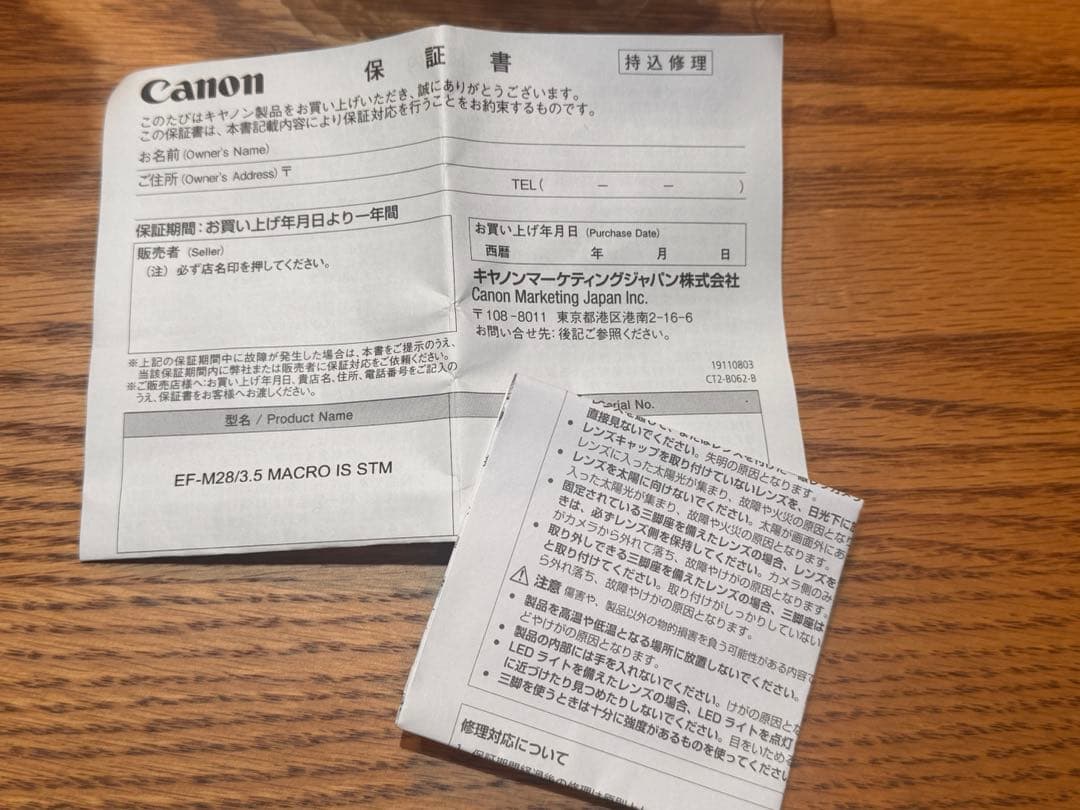 Canon
保証書
持込修理
このたびはキヤノン製品をお買い上げいただき、誠にありがとうございます。
この保証書は、本書記載内容により保証対応を行うことをお約束するものです。
お名前 (Owner's Name)
ご住所 (Owner's Address) 〒
TEL ( － － )
保証期間：お買い上げ年月日より一年間
販売者 (Seller)
（注）必ず店名印を押してください。
お買い上げ年月日 (Purchase Date)
西暦 年 月 日
キヤノンマーケティングジャパン株式会社
Canon Marketing Japan Inc.
〒108-8011 東京都港区港南2-16-6
お問い合せ先：後記ご参照ください。
※上記の保証期間中に故障が発生した場合は、本書をご提示のうえ、
当該保証期間内に弊社または販売者に保証対応をご依頼ください。
※ご販売店様へ:お買い上げ年月日、貴店名、住所、電話番号をご記入の
うえ、保証書をお客様へお渡しください。
19110803
CT2-B062-B
型名 / Product Name
Serial No.
EF-M28/3.5 MACRO IS STM
直接見ないでください。失明の原因となります。
• レンズキャップを取り付けていないレンズを、日光下に
レンズに入った太陽光が集まり、故障や火災の原因となり
• レンズを太陽に向けないでください。太陽が画面外にあ
入った太陽光が集まり、故障や火災の原因となります。
• 固定されている三脚座を備えたレンズの場合、レンズを
きは、必ずレンズ側を保持してください。カメラ側のみ
がカメラから外れて落ち、故障やけがの原因となります。
• 取り外しできる三脚座を備えたレンズの場合、三脚座は
と取り付けてください。取り付けがしっかりしていない
ら外れ落ち、故障やけがの原因となります。
⚠ 注意 傷害や、製品以外の物的損害を負う可能性がある内容で
• 製品を高温や低温となる場所に放置しないでください。
どやけがの原因となります。
• 製品の内部には手を入れないでください。けがの原因とな
• LEDライトを備えたレンズの場合、LEDライトを点灯
に近づけたり見つめたりしないでください。目をいためる
• 三脚を使うときは十分に強度があるものを使ってくださ
修理対応について
1. 保証期間経過後の修理は原則と